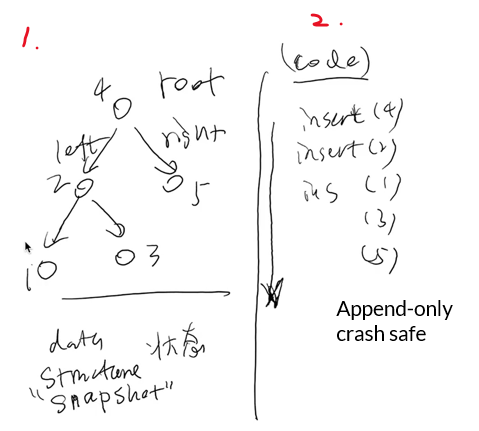 1.
4
root
left
right
2
5
1
3
data 状态
structure
"snapshot"
2.
(code)
insert (4)
insert (2)
ins (1)
(3)
(5)
Append-only
crash safe